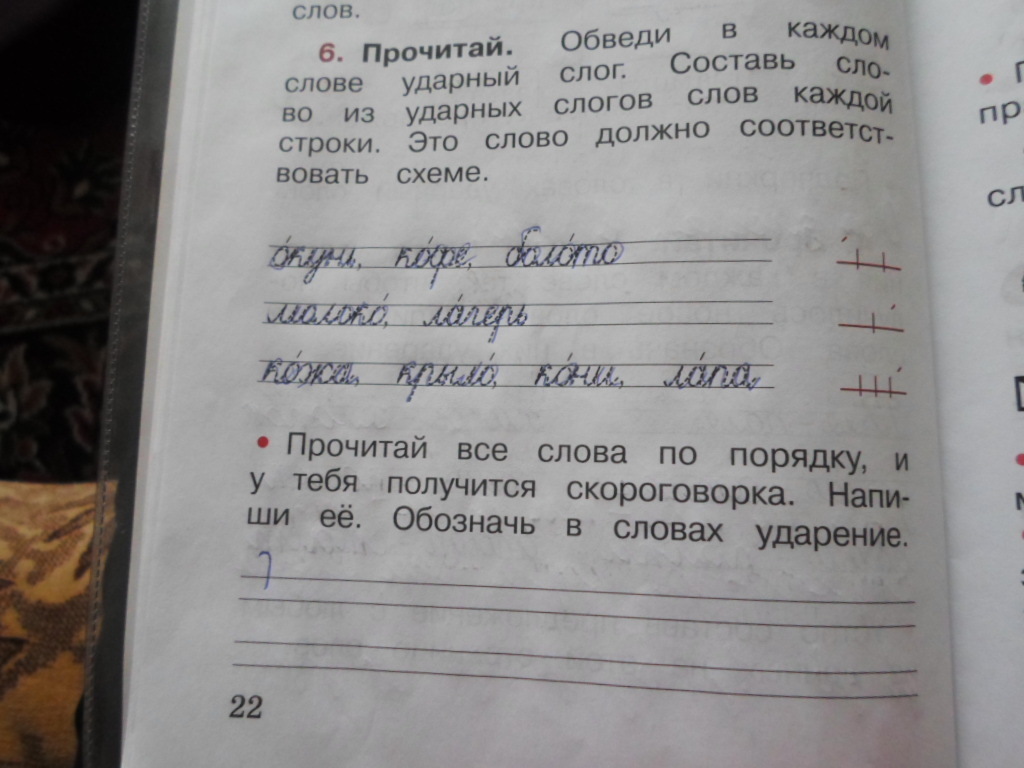 слов.
6. Прочитай. Обведи в каждом
слове ударный слог. Составь сло-
во из ударных слогов слов каждой
строки. Это слово должно соответст-
вовать схеме.
о́куни, ко́фе, боло́то
молоко́, ла́герь
ко́жа, крыло́, ко́ни, ла́па,
• Прочитай все слова по порядку, и
у тебя получится скороговорка. Напи-
ши её. Обозначь в словах ударение.
22
• П
пр
сл